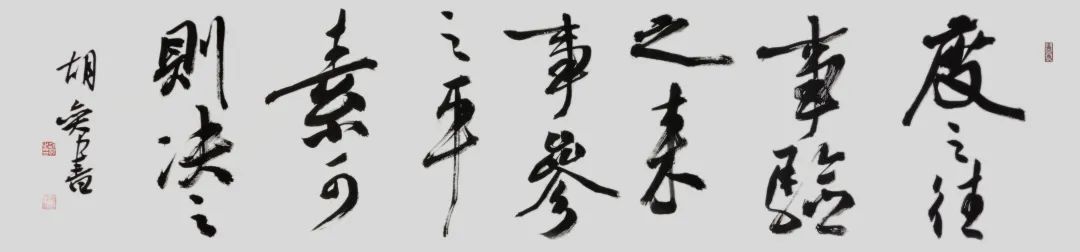 度之往
事驗
之来
事參
之平
素可
則决之
胡
書